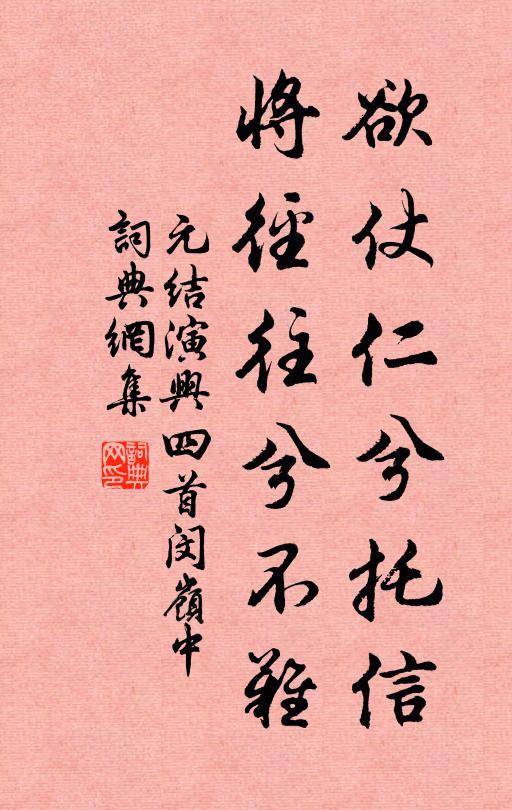 欲仗仁兮托信
將徑往兮不難
元结演興四首閔嶺中
詞典網集
詞典
网印